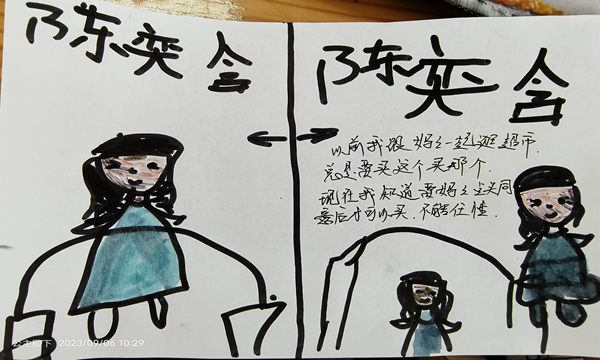 陈奕含
陈奕含
以前我跟妈妈一起逛超市.
总是要买这个买那个.
现在我知道要妈妈同
最后才可以买.不能任性.
公主殿下 2023/09/06 10:29